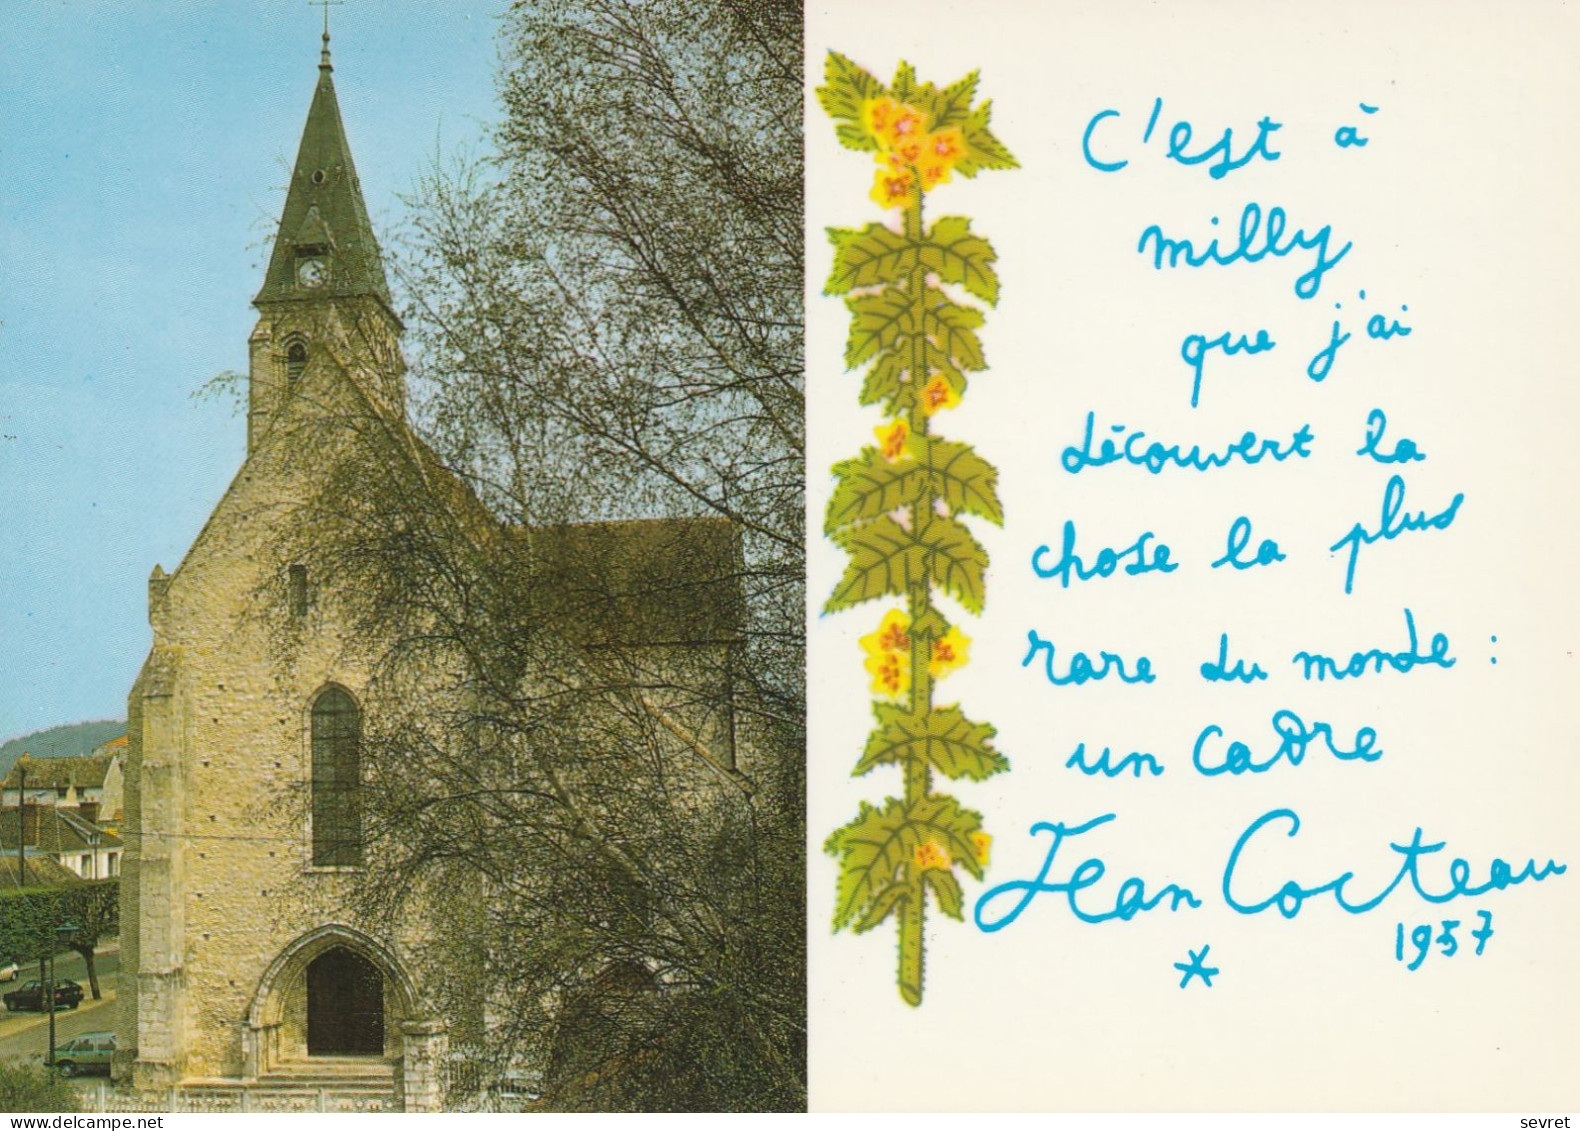 C'est à
milly
que j'ai
découvert la
chose la plus
rare du monde :
un cadre
Jean Cocteau
1957
*
www.delcampe.net
sevret